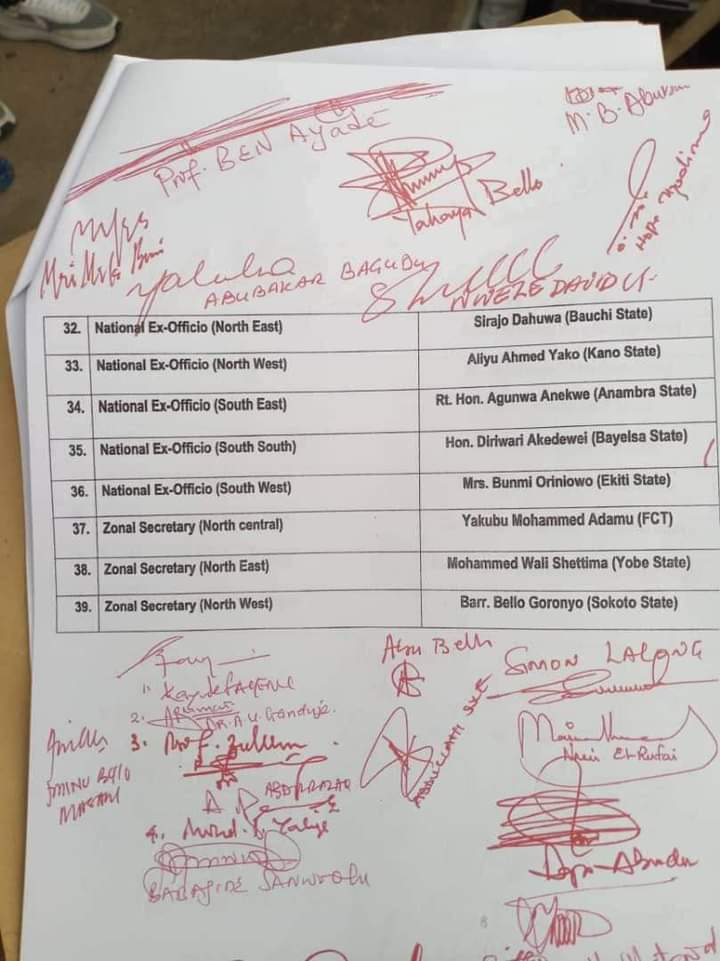 Prof. BEN Ayade
M.B. Abu
Yahaya Bello
Hope
ABUBAKAR BAGUDU
NWEZE DAVID U.
32. National Ex-Officio (North East) Sirajo Dahuwa (Bauchi State)
33. National Ex-Officio (North West) Aliyu Ahmed Yako (Kano State)
34. National Ex-Officio (South East) Rt. Hon. Agunwa Anekwe (Anambra State)
35. National Ex-Officio (South South) Hon. Diriwari Akedewei (Bayelsa State)
36. National Ex-Officio (South West) Mrs. Bunmi Oriniowo (Ekiti State)
37. Zonal Secretary (North central) Yakubu Mohammed Adamu (FCT)
38. Zonal Secretary (North East) Mohammed Wali Shettima (Yobe State)
39. Zonal Secretary (North West) Barr. Bello Goronyo (Sokoto State)
Abu Bello
SIMON LALONG
1.
2.
DR. A. U. Ganduje
ABDULLAHI SULE
3. Prof. Zulum
Nasir El-Rufai
AMINU BELLO
MASARI
ABDULRAZAQ
4.
BABAJIDE SANWOOLU
Dapo Abiodun